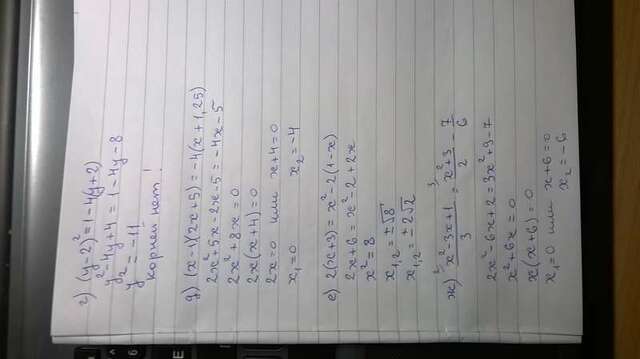 г) (y-2)² = 1-4(y+2)
y²-4y+4 = 1-4y-8
y² = -11
корней нет!
д) (x-1)(2x+5) = -4(x+1,25)
2x²+5x-2x-5 = -4x-5
2x²+8x=0
2x(x+4)=0
2x=0 или x+4=0
x₁=0 x₂=-4
е) 2(x+3) = x²-2(1-x)
2x+6 = x²-2+2x
x²=8
x₁,₂ = ±√8
x₁,₂ = ±2√2
ж) ² x²-3x+1 / 3 = ³ x²+3 / 2 - 7 / 6
2x²-6x+2 = 3x²+9-7
x²+6x=0
x(x+6)=0
x₁=0 или x+6=0
x₂=-6